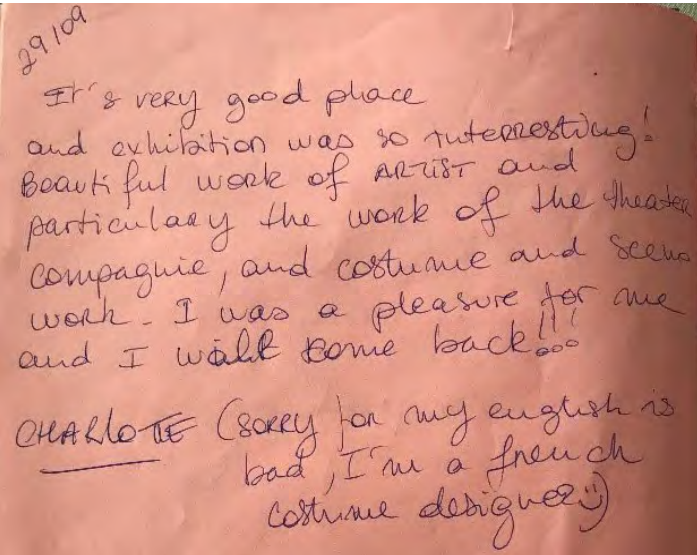 29/09
It's very good place
and exhibition was so interresting!
Beautiful work of ARTIST and
particulary the work of the theater
compagnie, and costume and sceno
work. I was a pleasure for me
and I will come back!!!
CHARLOTTE (SORRY for my english is
bad, I'm a french
costume designer :))